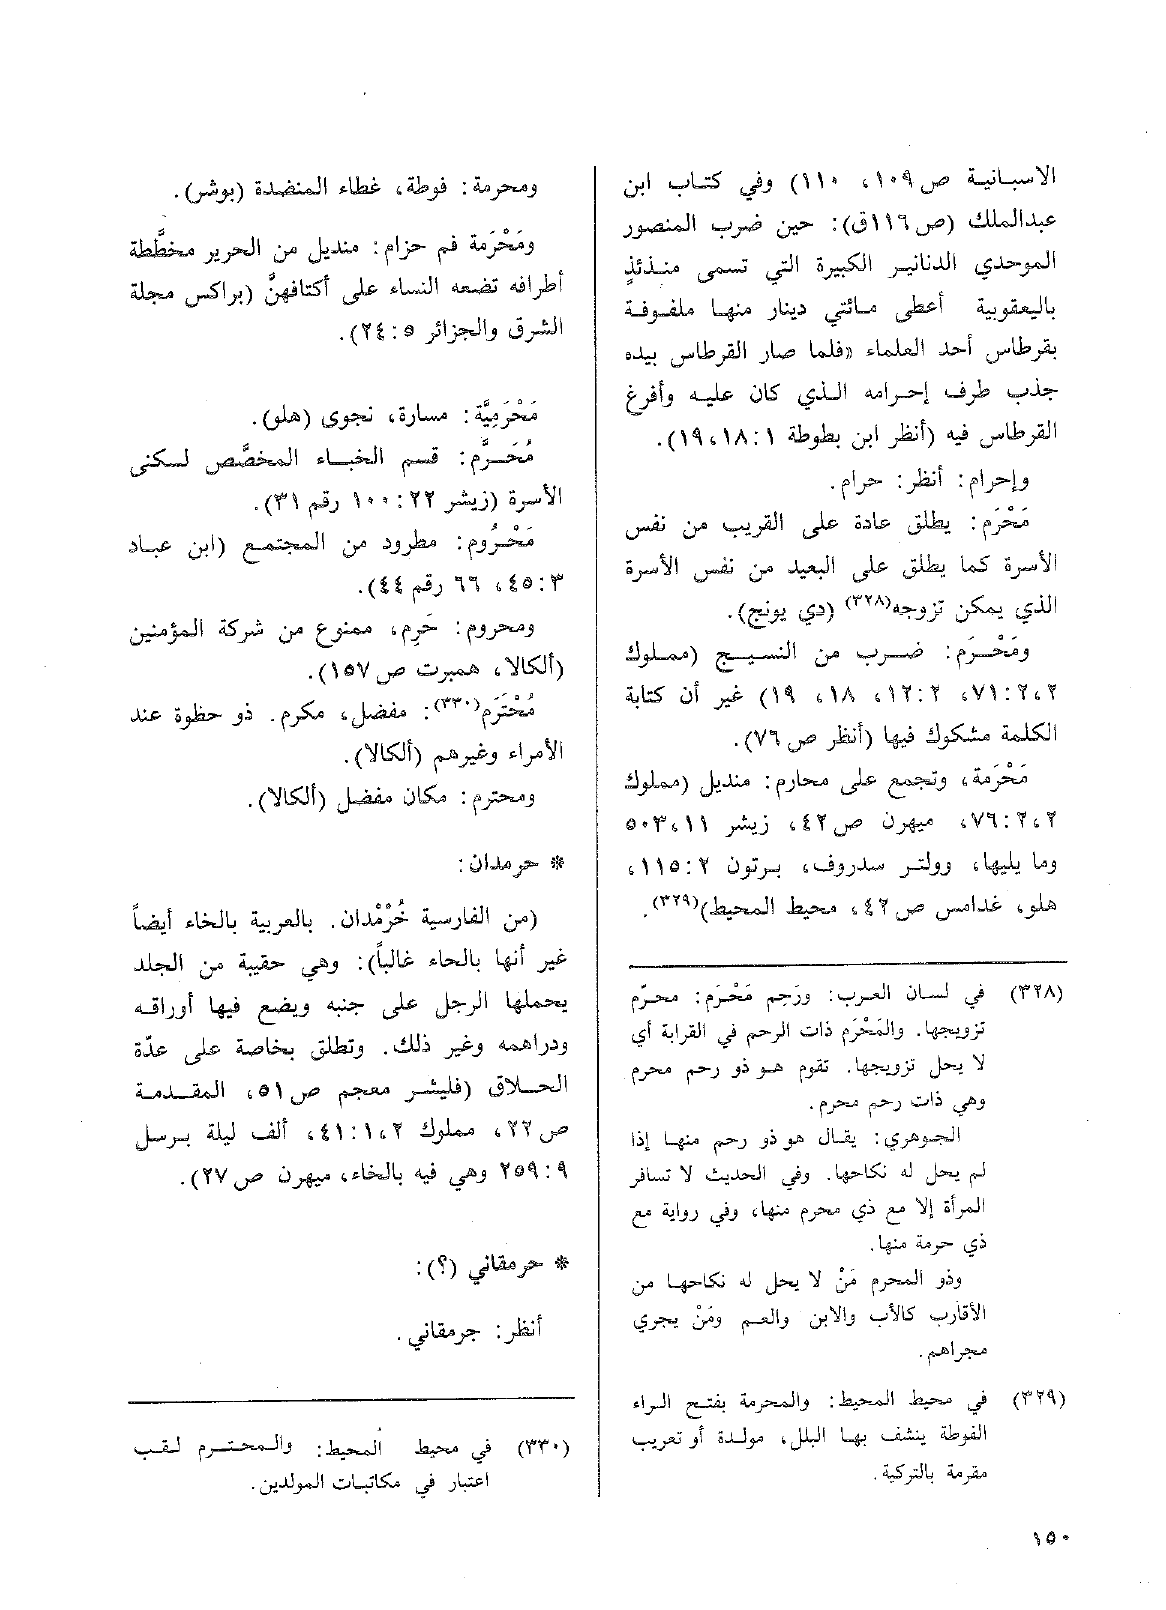 الاسبانية ص١٠٩، ١١٠) وفي كتاب ابن
عبدالملك (ص١١٦ق): حين ضرب المنصور
الموحدي الدنانير الكبيرة التي تسمى منذئذٍ
باليعقوبية أعطى مائتي دينار منها ملفوفة
بقرطاس أحد العلماء «فلما صار القرطاس بيده
جذب طرف إحرامه الذي كان عليه وأفرغ
القرطاس فيه (أنظر ابن بطوطة ١: ١٨، ١٩).
وإحرام: أنظر: حرام.
مَحْرَم: يطلق عادة على القريب من نفس
الأسرة كما يطلق على البعيد من نفس الأسرة
الذي يمكن تزوجه(٣٢٨) (دي يونج).
ومَحْرَم: ضرب من النسيج (مملوك
٢، ٢: ٧١، ٢: ١٢، ١٨، ١٩) غير أن كتابة
الكلمة مشكوك فيها (أنظر ص٧٦).
مَحْرَمة، وتجمع على محارم: منديل (مملوك
٢، ٢: ٧٦، ميهرن ص٤٢، زيشر ١١، ٥٠٣
وما يليها، وولتر سدروف، برتون ٢: ١١٥،
هلو، غدامس ص٤٢، محيط المحيط)(٣٢٩).
(٣٢٨) في لسان العرب: ورَحِم مَحْرَم: محرّم
تزويجها. والمَحْرَم ذات الرحم في القرابة أي
لا يحل تزويجها. تقوم هو ذو رحم محرم
وهي ذات رحم محرم.
الجوهري: يقال هو ذو رحم منها إذا
لم يحل له نكاحها. وفي الحديث لا تسافر
المرأة إلا مع ذي محرم منها، وفي رواية مع
ذي حرمة منها.
وذو المحرم مَنْ لا يحل له نكاحها من
الأقارب كالأب والابن والعم ومَنْ يجري
مجراهم.
(٣٢٩) في محيط المحيط: والمحرمة بفتح الراء
الفوطة ينشف بها البلل، مولدة أو تعريب
مقرمة بالتركية.
ومحرمة: فوطة، غطاء المنضدة (بوشر).
ومَحْرَمة فم حزام: منديل من الحرير مخطَّطة
أطرافه تضعه النساء على أكتافهنَّ (براكس مجلة
الشرق والجزائر ٥: ٢٤).
مَحْرَمِيَّة: مسارة، نجوى (هلو).
مُحَرَّم: قسم الخباء المخصَّص لسكنى
الأسرة (زيشر ٢٢: ١٠٠ رقم ٣١).
مَحْرُوم: مطرود من المجتمع (ابن عباد
٣: ٤٥، ٦٦ رقم ٤٤).
ومحروم: حَرِم، ممنوع من شركة المؤمنين
(ألكالا، همبرت ص١٥٧).
مُحْتَرَم(٣٣٠): مفضل، مكرم. ذو حظوة عند
الأمراء وغيرهم (ألكالا).
ومحترم: مكان مفضل (ألكالا).
* حرمدان:
(من الفارسية خُرْمْدان. بالعربية بالخاء أيضاً
غير أنها بالحاء غالباً): وهي حقيبة من الجلد
يحملها الرجل على جنبه ويضع فيها أوراقه
ودراهمه وغير ذلك. وتطلق بخاصة على عدّة
الحلاق (فليشر معجم ص٥١، المقدمة
ص٢٢، مملوك ٢، ١: ٤١، ألف ليلة برسل
٩: ٢٥٩ وهي فيه بالخاء، ميهرن ص٢٧).
* حرمقاني (؟):
أنظر: جرمقاني.
(٣٣٠) في محيط المحيط: والمحترم لقب
اعتبار في مكاتبات المولدين.
١٥٠